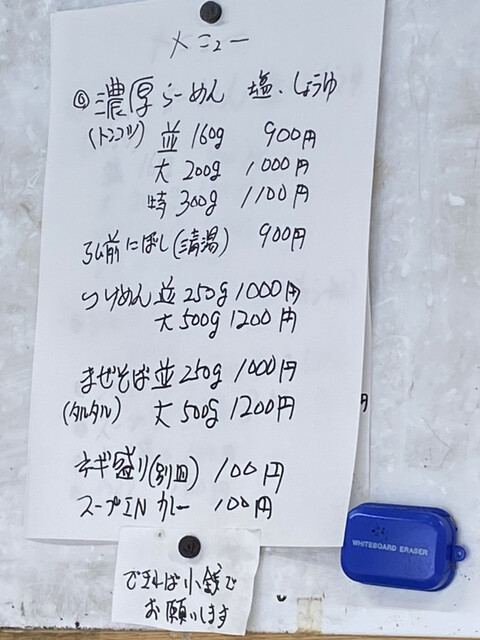 メニュー
◎濃厚らーめん 塩、しょうゆ
(トンコツ) 並 160g 900円
大 200g 1000円
特 300g 1100円
弘前にぼし(清湯) 900円
つけめん 並 250g 1000円
大 500g 1200円
まぜそば 並 250g 1000円
(タルタル) 大 500g 1200円
円
ネギ盛り(別皿) 100円
スープIN カレー 100円
WHITEBOARD ERASER
できれば小銭で
お願いします